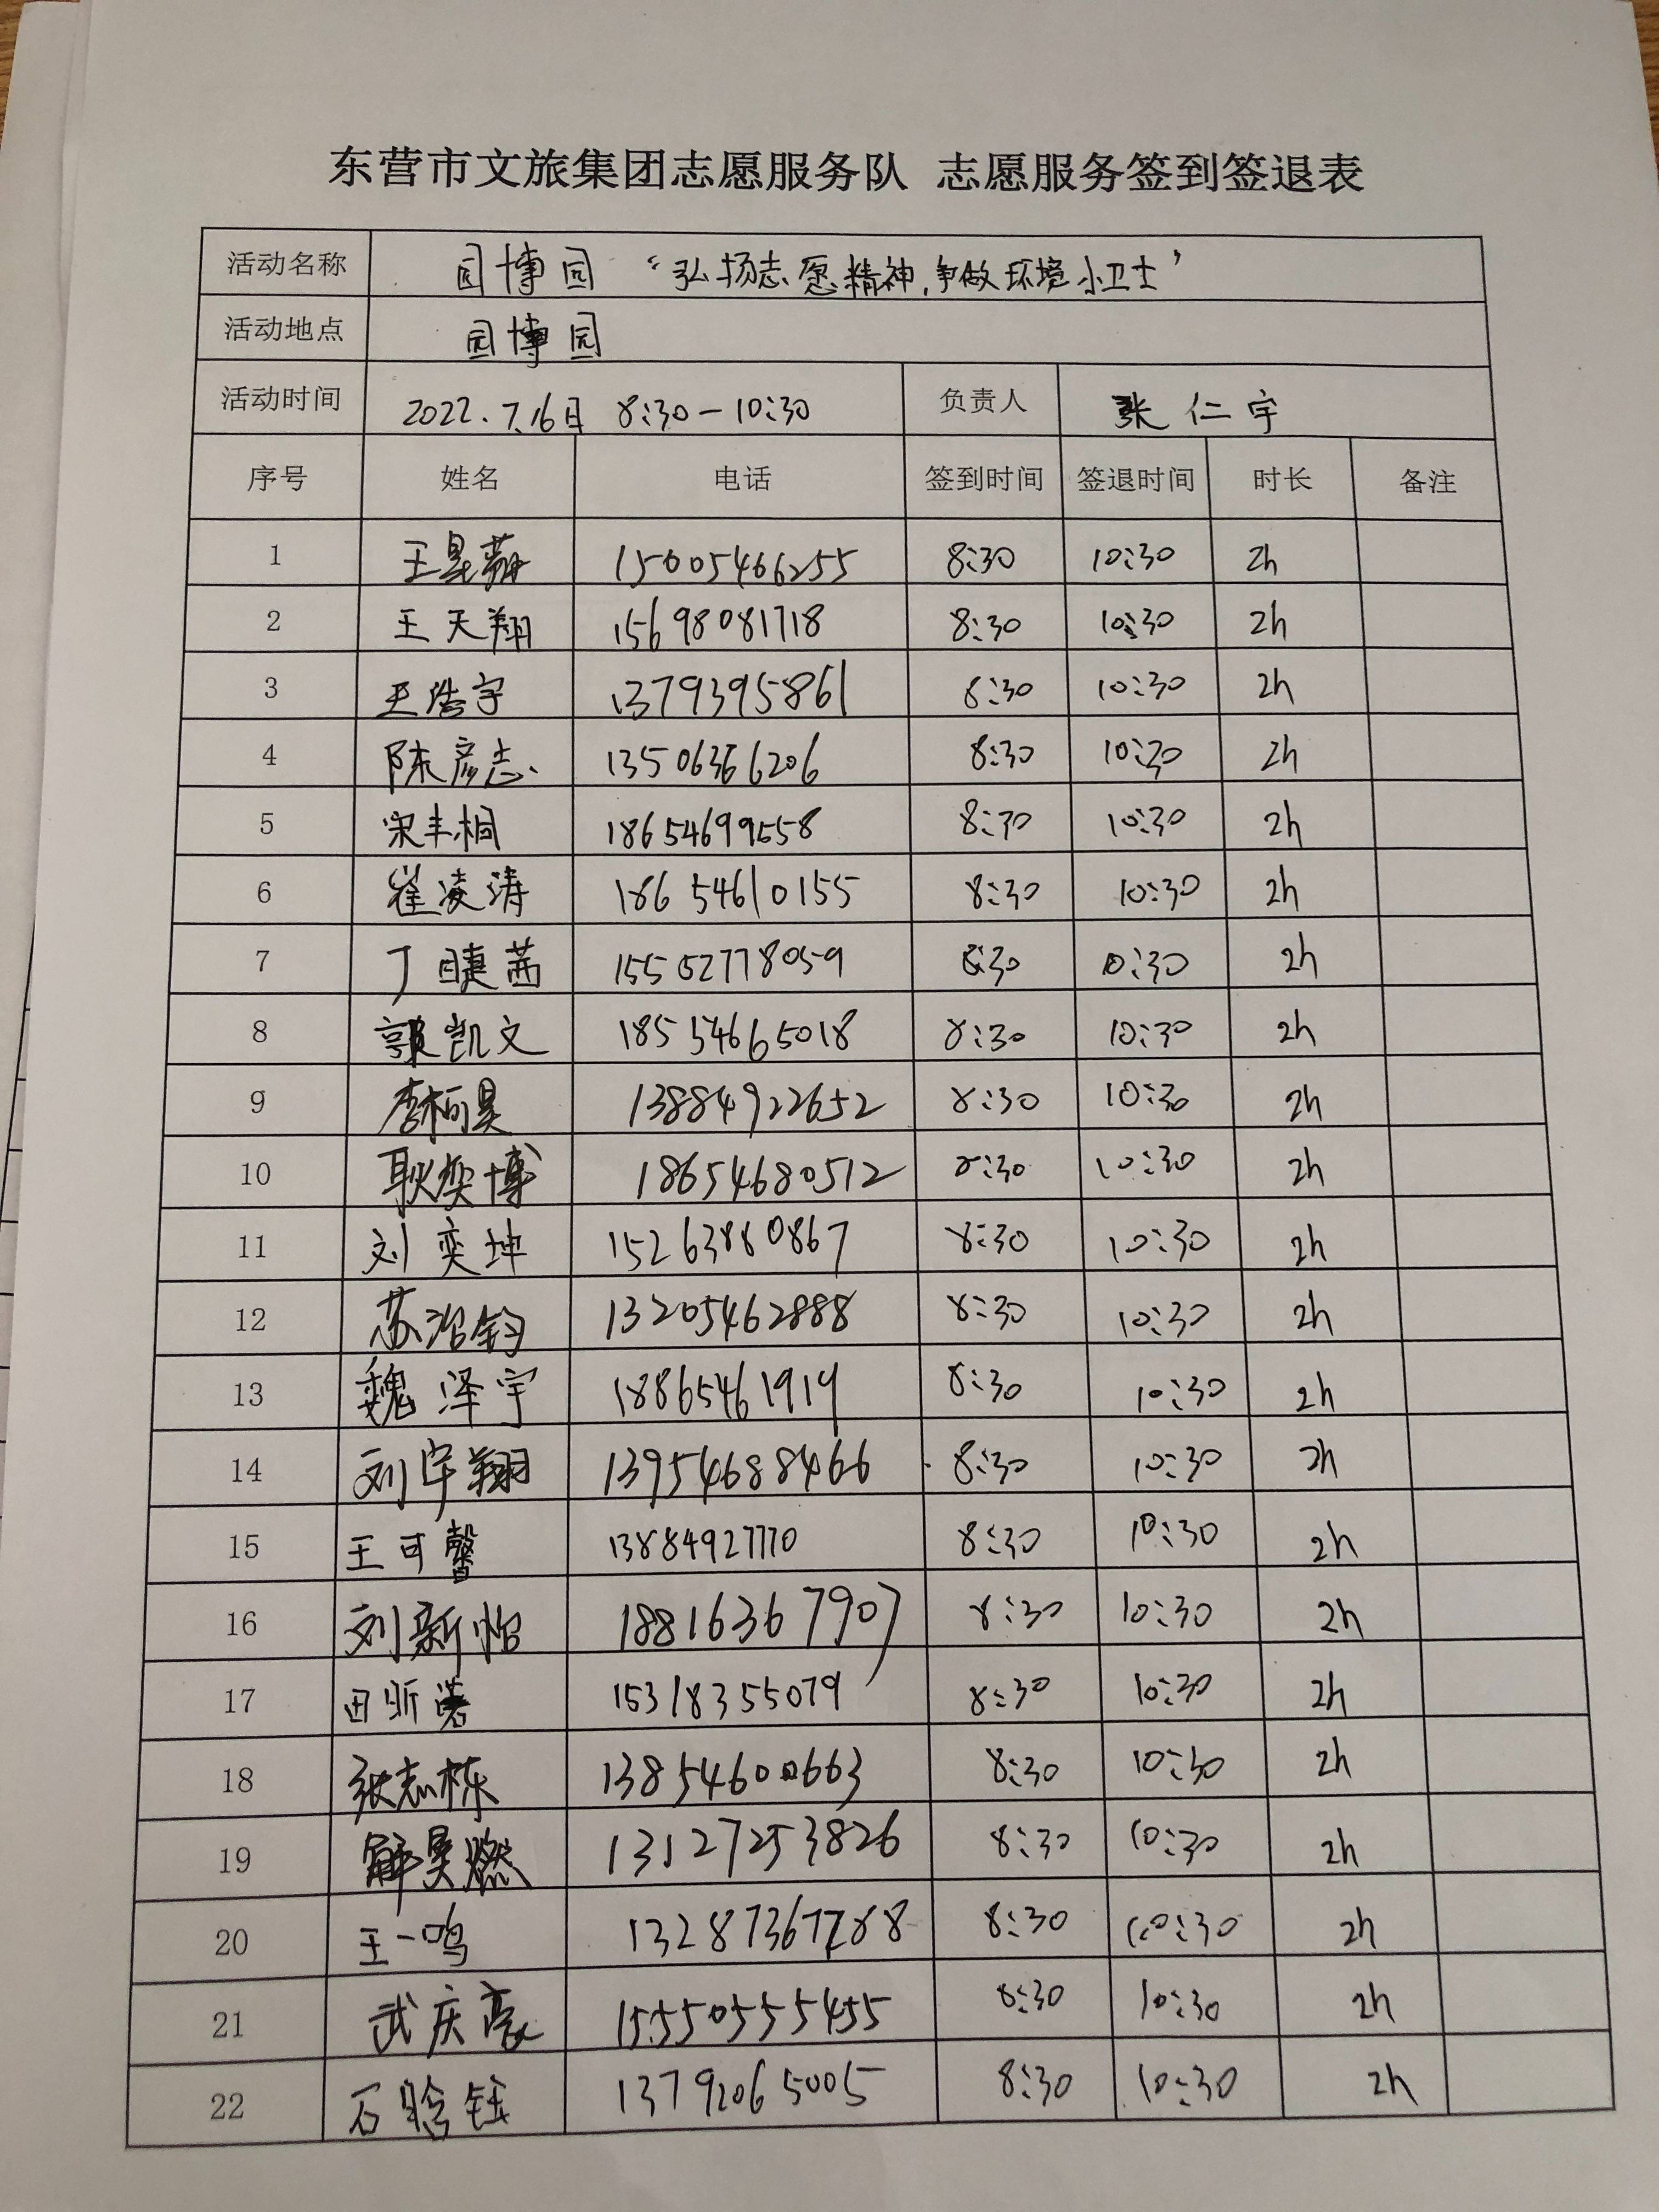 东营市文旅集团志愿服务队 志愿服务签到签退表
活动名称 园博园 “弘扬志愿精神,争做环境小卫士”
活动地点 园博园
活动时间 2022.7.16日 8:30-10:30 负责人 张仁宇
序号 姓名 电话 签到时间 签退时间 时长 备注
1 15005466255 8:30 10:30 2h
2 王天翔 15698081718 8:30 10:30 2h
3 王浩宇 1379395861 8:30 10:30 2h
4 陈彦志 13506366206 8:30 10:30 2h
5 宋丰桐 18654699558 8:30 10:30 2h
6 崔凌涛 18654610155 8:30 10:30 2h
7 丁睫茜 15552778059 8:30 10:30 2h
8 郭凯文 18554665018 8:30 10:30 2h
9 李柯昊 13884922652 8:30 10:30 2h
10 耿奕博 18654680512 8:30 10:30 2h
11 刘奕坤 15263880867 8:30 10:30 2h
12 苏冶钧 13205462888 8:30 10:30 2h
13 魏泽宇 18865461919 8:30 10:30 2h
14 刘宇翔 13954688466 8:30 10:30 2h
15 王可馨 13884927770 8:30 10:30 2h
16 刘新怡 18816367907 8:30 10:30 2h
17 田昕诺 15318355079 8:30 10:30 2h
18 张志栋 13854600663 8:30 10:30 2h
19 解昊燃 13127253826 8:30 10:30 2h
20 王一鸣 8:30 10:30 2h
21 武庆豪 15550555455 8:30 10:30 2h
22 石晗钰 13792065005 8:30 10:30 2h